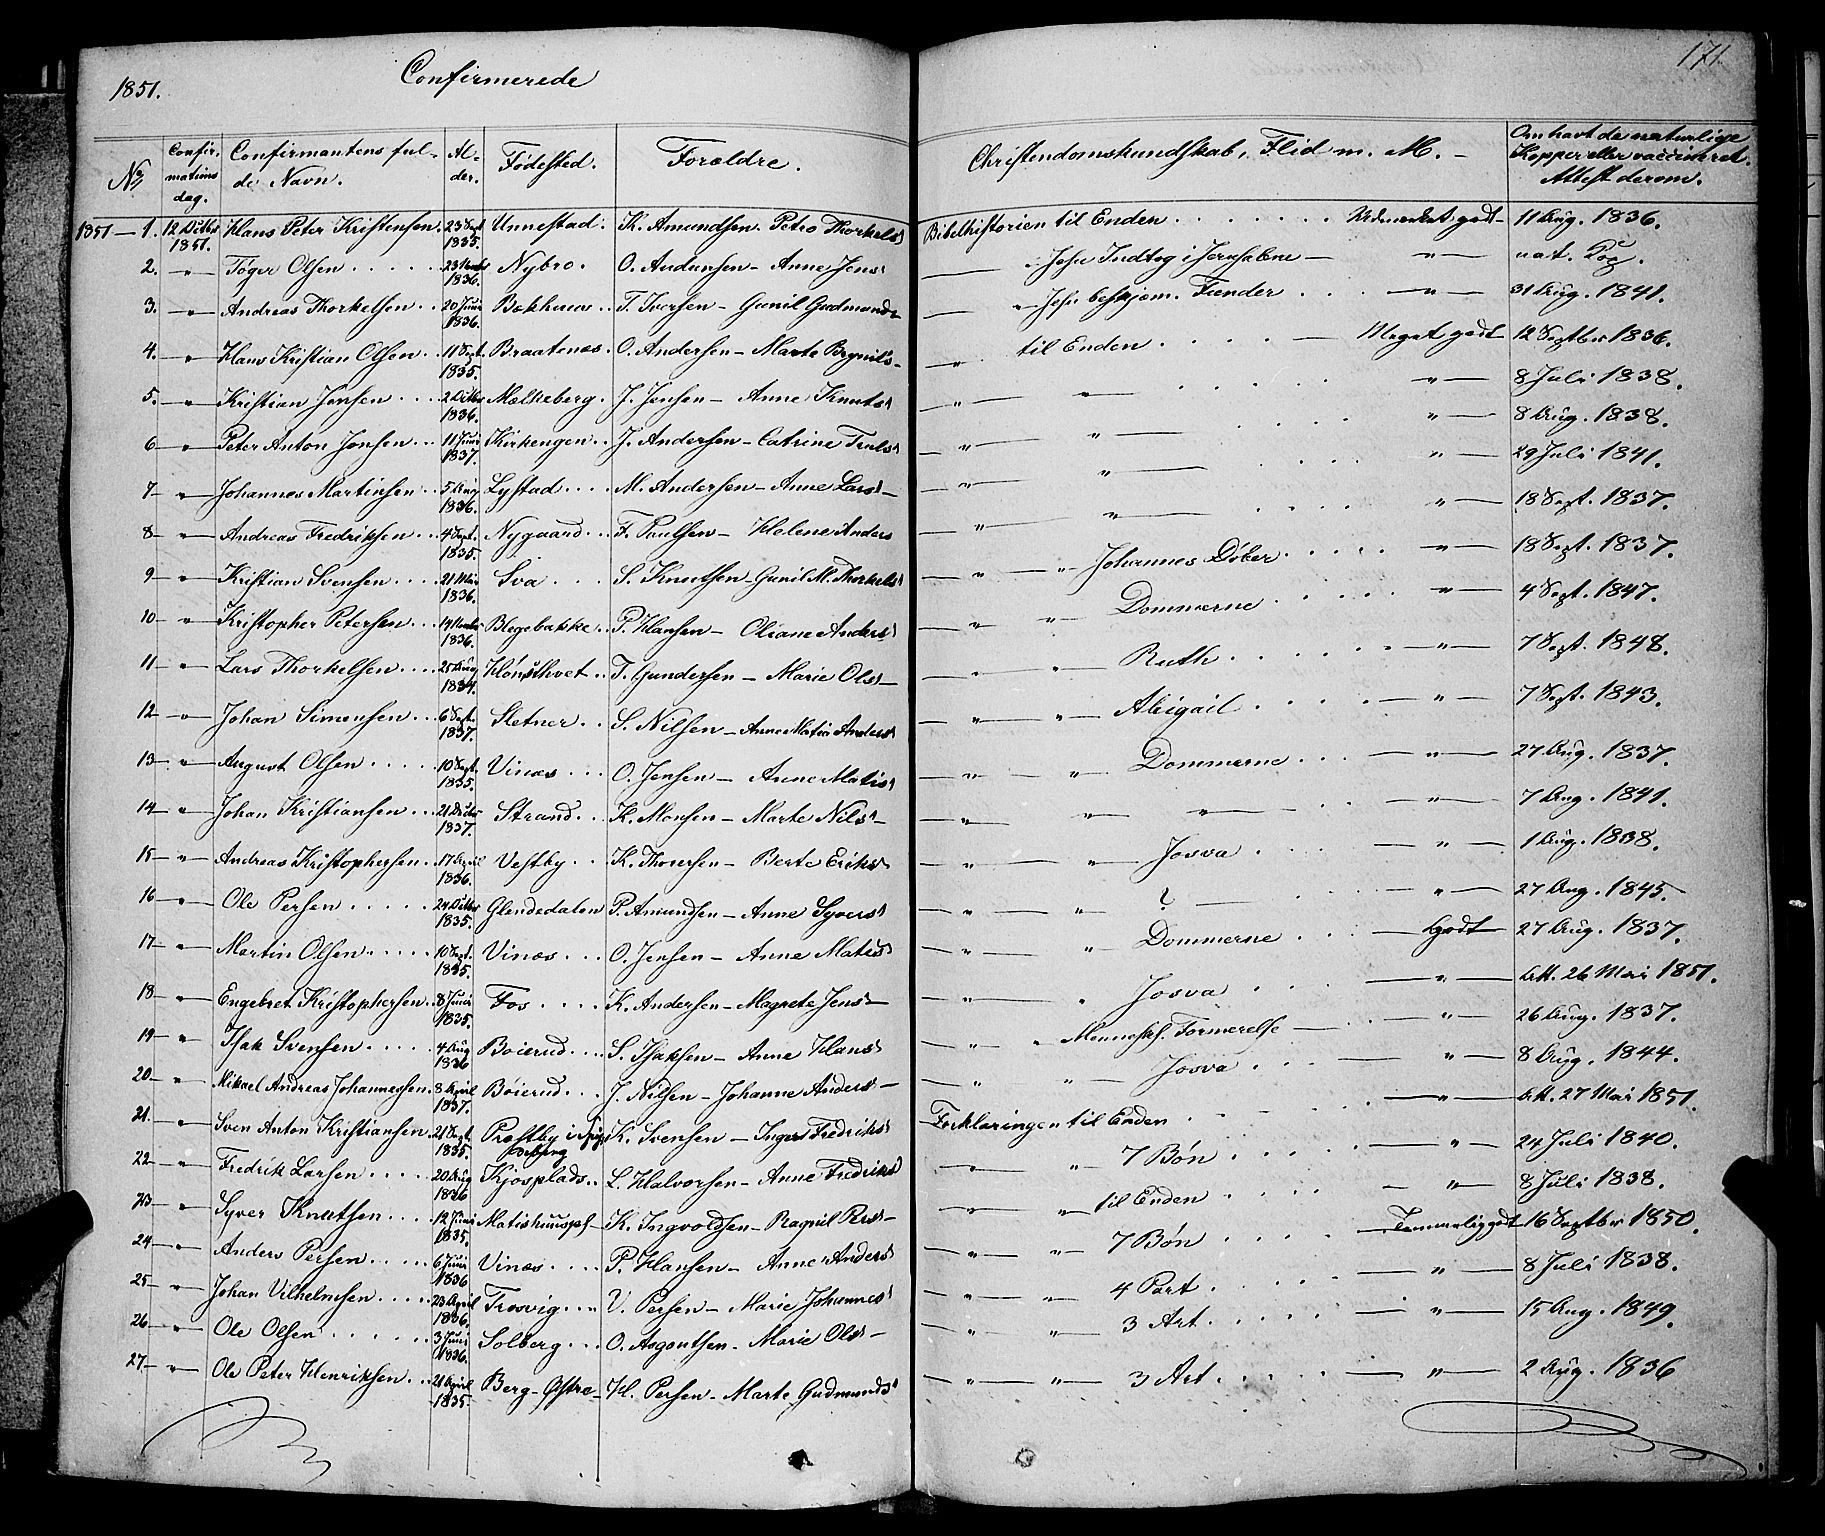 1851.
Confirmerede
171.
No
Confirmations dag.
Confirmantens fulde Navn.
Alder.
Fødested.
Forældre.
Christendomskundskab, Flid m. M.
Om havt de naturlige Kopper eller vaccineret. Attest derom.
1851 — 1. 12 Octbr 1851. Hans Peter Kristensen. 23 Sept 1835. Unnestad. K. Amundsen Petro Thorkels Bibelhistorien til Enden Udmærket godt 11 Aug. 1836.
2. " Tøger Olsen 1836. Nybro. O. Andersen — Anne Jens " Jesu Indtog i Jerusalem " nat. Kop.
3. " Andreas Thorkelsen 20 Juni 1836. Bækhuus T. Iversen — Gunil Gudmund " Jesu beskjæm. Fiender " 31 Aug. 1841.
4. " Hans Kristian Olsen 11 Sept. 1835. Braatenæs. O. Andersen — Marte Brynils " til Enden Meget godt 12 Septbr 1836.
5. " Kristian Jensen 2 Octbr 1836. Mælkeberg. J. Jensen — Anne Knuts " " " 8 Juli 1838.
6 " Peter Anton Jensen 11 Juni 1837. Kirkengen J. Andersen — Catrine Truls " " " 8 Aug. 1838.
7 " Johannes Martinsen 5 Aug 1836. Lystad M. Andersen — Anne Lars " " " 29 Juli 1841.
8 " Andreas Fredriksen 4 Sept. 1835. Nygaard F. Paulsen — Helene Anders " " " 18 Sept. 1837.
9 " Kristian Svensen 21 Mai 1836. Sva S. Knutsen — Gunil M. Thorkels " " Johannes Døber " 18 Sept. 1837.
10 " Kristopher Petersen 1836. Blegebakke P. Hansen — Oliane Anders " " Dommerne " 4 Sept. 1847.
11 " Lars Thorkelsen 25 Aug 1834. Hønsthvet T. Gundersen — Marie Ols " Ruth " 7 Sept. 1848.
12 " Johan Simensen 6 Sept. 1837. Sletner S. Nilsen — Anne Matia Anders " " Abigail " 7 Sept. 1843.
13 " August Olsen 10 Sept. 1835. Vinæs O. Jensen — Anne Matis " " Dommerne " 27 Aug. 1837.
14 " Johan Kristiansen 21 Octbr 1837. Strand K. Monsen — Marte Nils " " " " 7 Aug. 1841.
15 " Andreas Kristophersen 17 April 1836. Vestby K. Thoersen — Berte Eriks " " Josva " 1 Aug. 1838.
16 " Ole Persen 24 Octbr 1835. Glendedalen P. Amundsen — Anne Syvers " " " 27 Aug. 1845.
17 " Martin Olsen 10 Sept. 1835. Vinæs O. Jensen — Anne Matis " " Dommerne Godt 27 Aug. 1837.
18 " Engebret Kristophersen 8 Juni 1835. Fos K. Andersen — Magrete Jens " " Josva " Att. 26 Mai 1851.
19 " Isak Svensen 4 Aug 1836 Boierud S. Isaksen — Anne Hans " " Mennesk. Fornærelse " 26 Aug. 1837.
20 " Mikael Andreas Johannessen 8 April 1837. Böierud J. Nilsen — Johanne Anders " " Josva " 8 Aug. 1844.
21. " Sven Anton Kristiansen 21 Sept. 1835. Præstby i K. Svensen — Inger Fredriks Forklaringen til Enden " Att. 27 Mai 1851.
22 " Fredrik Larsen 20 Aug 1836 Kjosplads L. Halvorsen — Anne Fredriks " " 7 Bøn " 24 Juli 1840.
23 " Syver Knutsen 12 Juni 1835. Matishuuspl K. Ingvoldsen — Ragnil Pers " " til Enden " 8 Juli 1838.
24 " Anders Persen 6 Juni 1836 Vinæs P. Hansen — Anne Anders " " 7 Bøn Temmelig godt 16 Septbr 1850.
25 " Johan Vilhelmsen 23 April 1836. Trosvig V. Persen — Marie Johannes " " 4 Part " 8 Juli 1838.
26 " Ole Olsen 3 Juni 1836. Solberg O. Asgautsen — Marie Ols " " 3 Art " 15 Aug. 1849.
27 " Ole Peter Henriksen 21 April 1835. Berg-Østre H. Persen — Marte Gudmunds " " 3 Art " 2 Aug. 1836